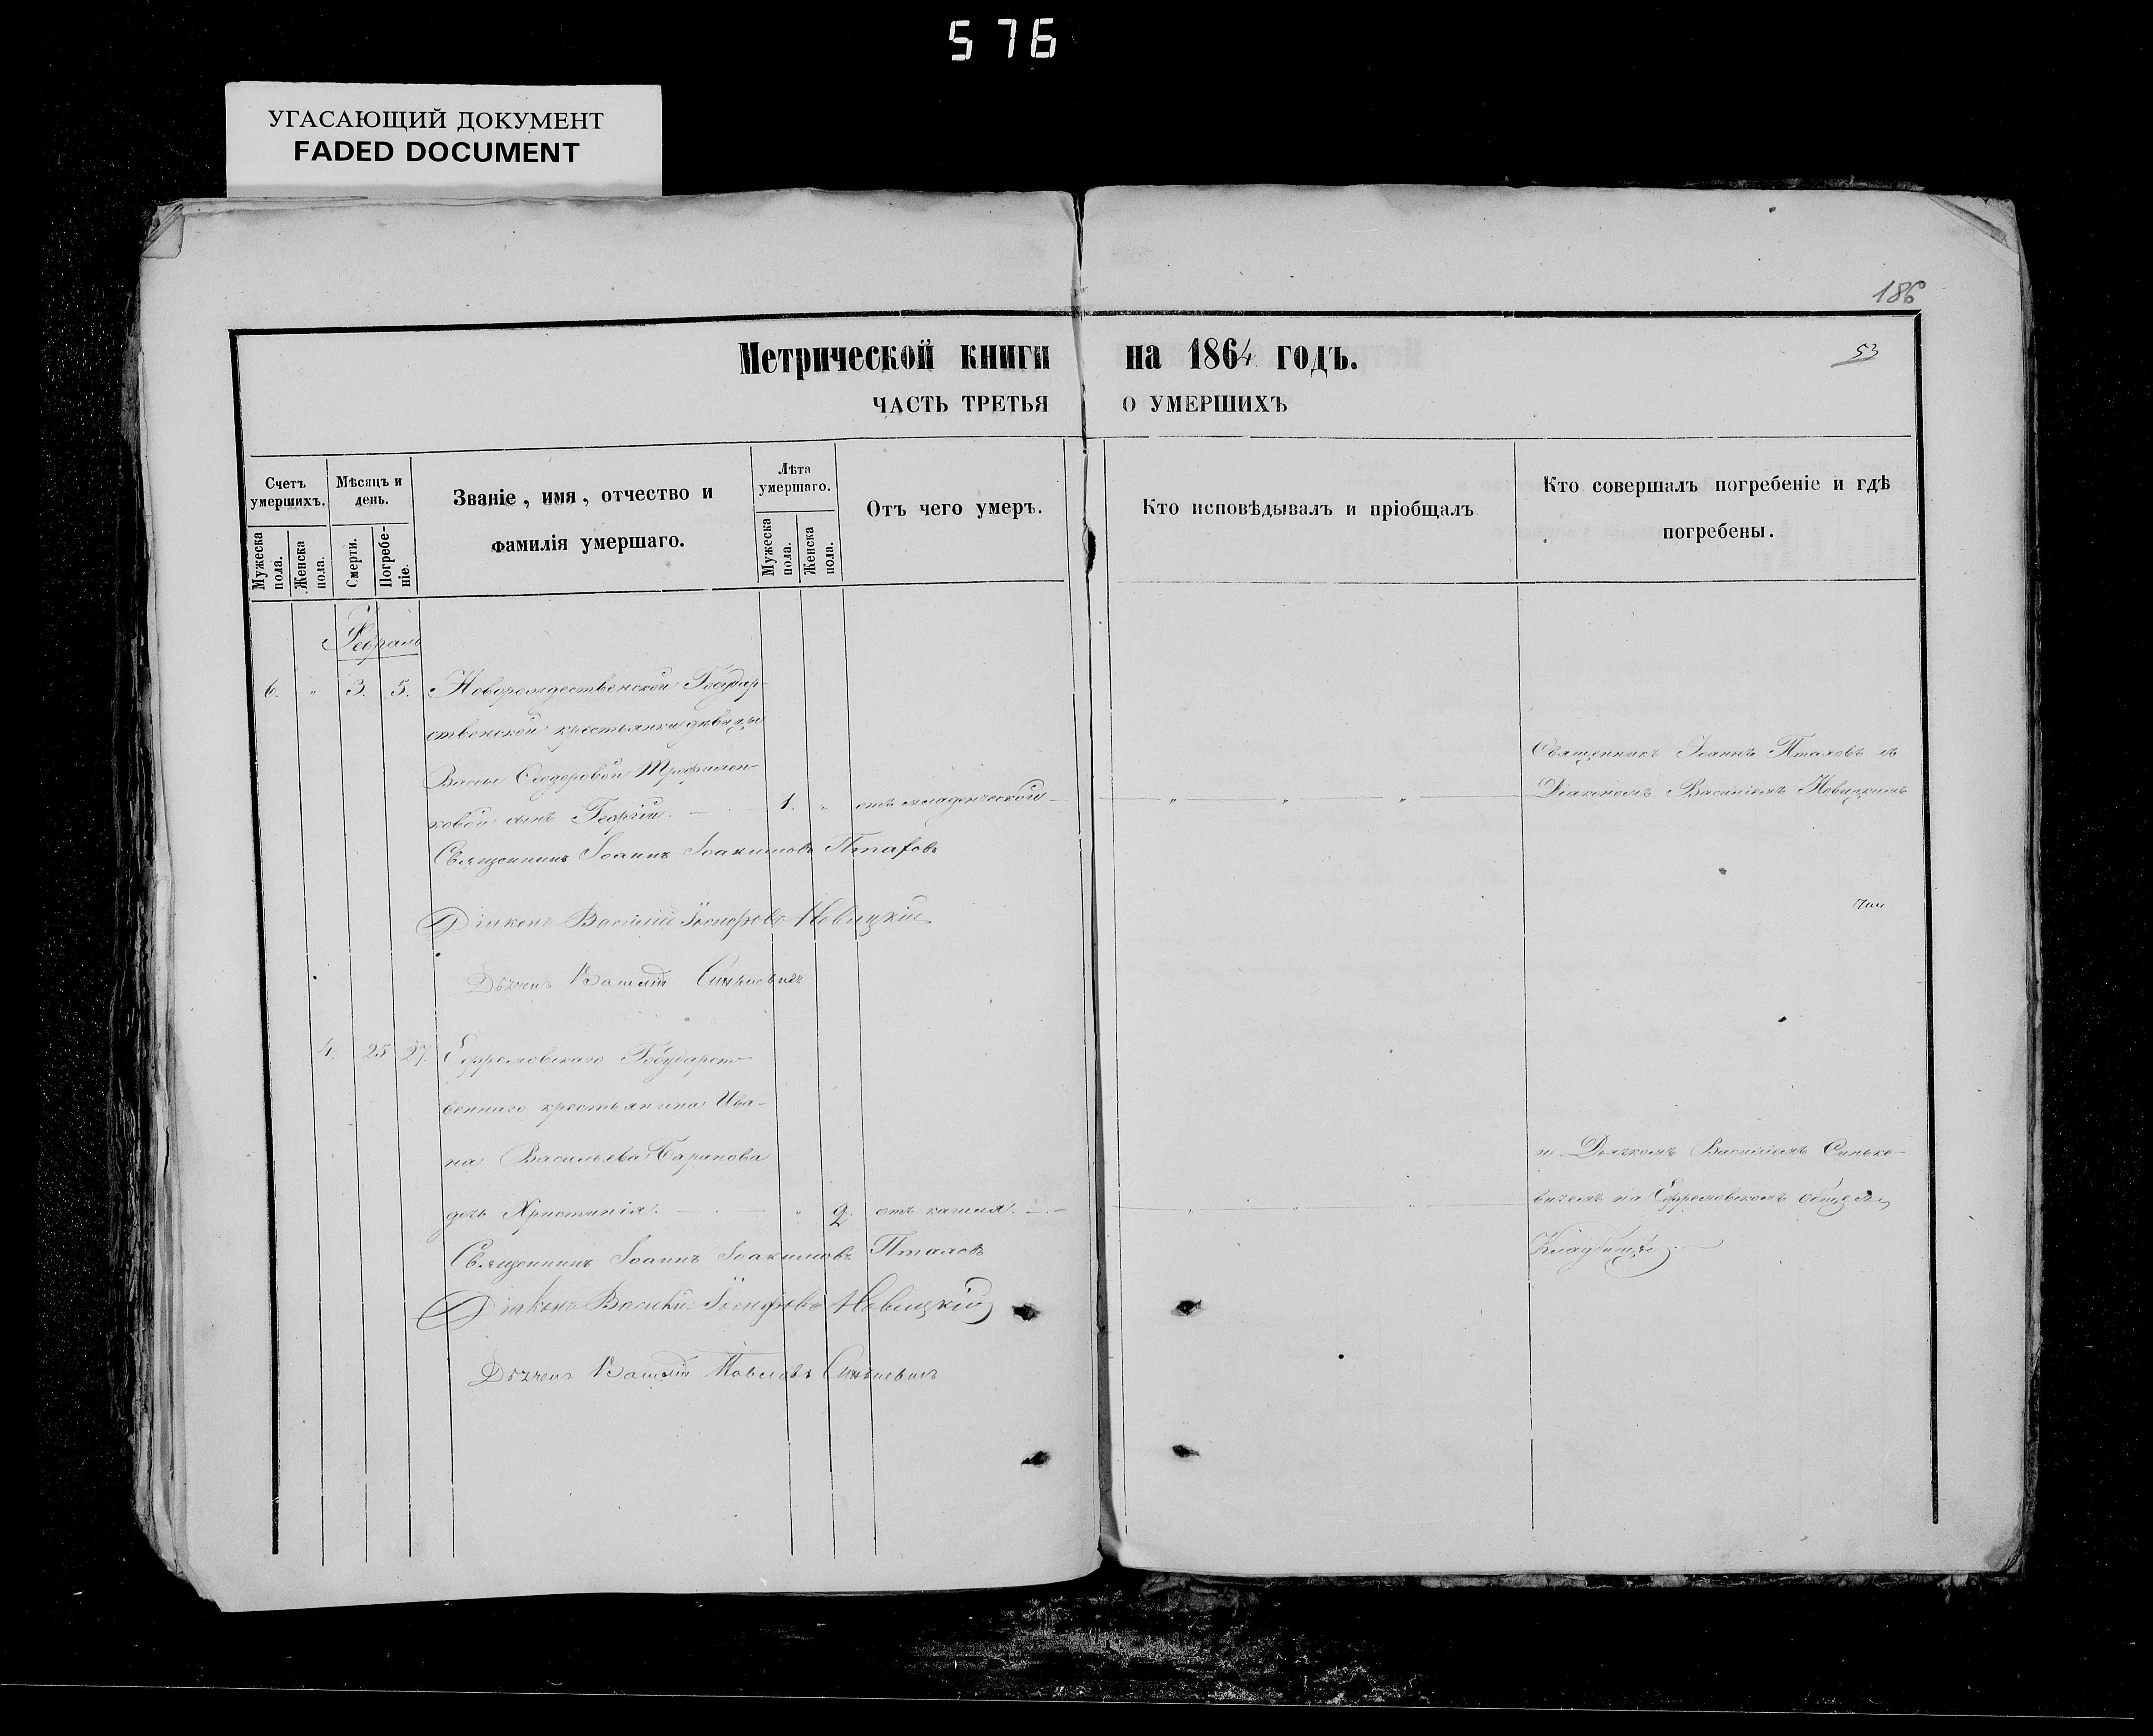 576
УГАСАЮЩИЙ ДОКУМЕНТ
FADED DOCUMENT
186
53
Метрической книги на 1864 годъ.
ЧАСТЬ ТРЕТЬЯ О УМЕРШИХЪ
Счетъ умершихъ.
Мужеска пола.
Женска пола.
Мѣсяцъ и день.
Смерти.
Погребеніе.
Званіе, имя, отчество и
фамилія умершаго.
Лѣта умершаго.
Мужеска пола.
Женска пола.
Отъ чего умеръ.
Кто исповѣдывалъ и пріобщалъ
Кто совершалъ погребеніе и гдѣ
погребены.
Февраль
6. " 3. 5. Новорождественской Государ-
ственской крестьянки дѣвицы
Вассы Ѳеодоровой Трофимен-
ковой сынъ Георгій. 1. " отъ младенческой
Священникъ Іоаннъ Іоакимовъ Пталовъ
Діаконъ Василій Іосифовъ Новицкій
Дьячекъ Василій Синькевичъ
Священникъ Іоаннъ Пталовъ съ
Діакономъ Василіемъ Новицкимъ
4. 25 27. Ефремовскаго Государст-
веннаго крестьянина Ива-
на Васильева Баранова
дочь Христинія. " 2. отъ кашля.
Священникъ Іоаннъ Іоакимовъ Пталовъ
Діаконъ Василій Іосифовъ Новицкій
Дьячекъ Василій Павловъ Синькевичъ
и Дьячкомъ Василіемъ Синьке-
вичемъ на Ефремовскомъ общемъ
Кладбищѣ.